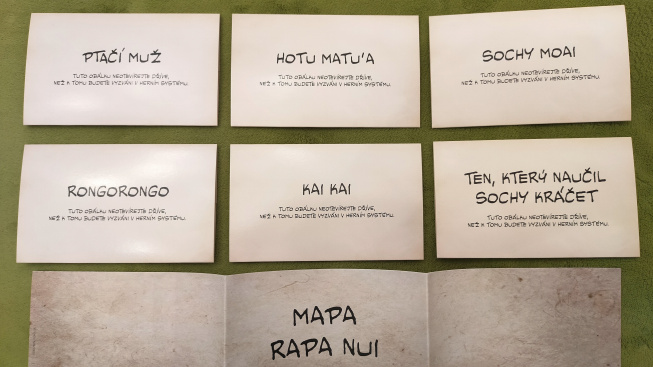 PTAČÍ MUŽ
TUTO OBÁLKU NEOTAVÍREJTE DŘÍVE,
NEŽ K TOMU BUDETE VYZVÁNI V HERNÍM SYSTÉMU.
HOTU MATU'A
TUTO OBÁLKU NEOTAVÍREJTE DŘÍVE,
NEŽ K TOMU BUDETE VYZVÁNI V HERNÍM SYSTÉMU.
SOCHY MOAI
TUTO OBÁLKU NEOTAVÍREJTE DŘÍVE,
NEŽ K TOMU BUDETE VYZVÁNI V HERNÍM SYSTÉMU.
RONGORONGO
TUTO OBÁLKU NEOTAVÍREJTE DŘÍVE,
NEŽ K TOMU BUDETE VYZVÁNI V HERNÍM SYSTÉMU.
KAI KAI
TUTO OBÁLKU NEOTAVÍREJTE DŘÍVE,
NEŽ K TOMU BUDETE VYZVÁNI V HERNÍM SYSTÉMU.
TEN, KTERÝ NAUČIL
SOCHY KRÁČET
TUTO OBÁLKU NEOTAVÍREJTE DŘÍVE,
NEŽ K TOMU BUDETE VYZVÁNI V HERNÍM SYSTÉMU.
MAPA
RAPA NUI